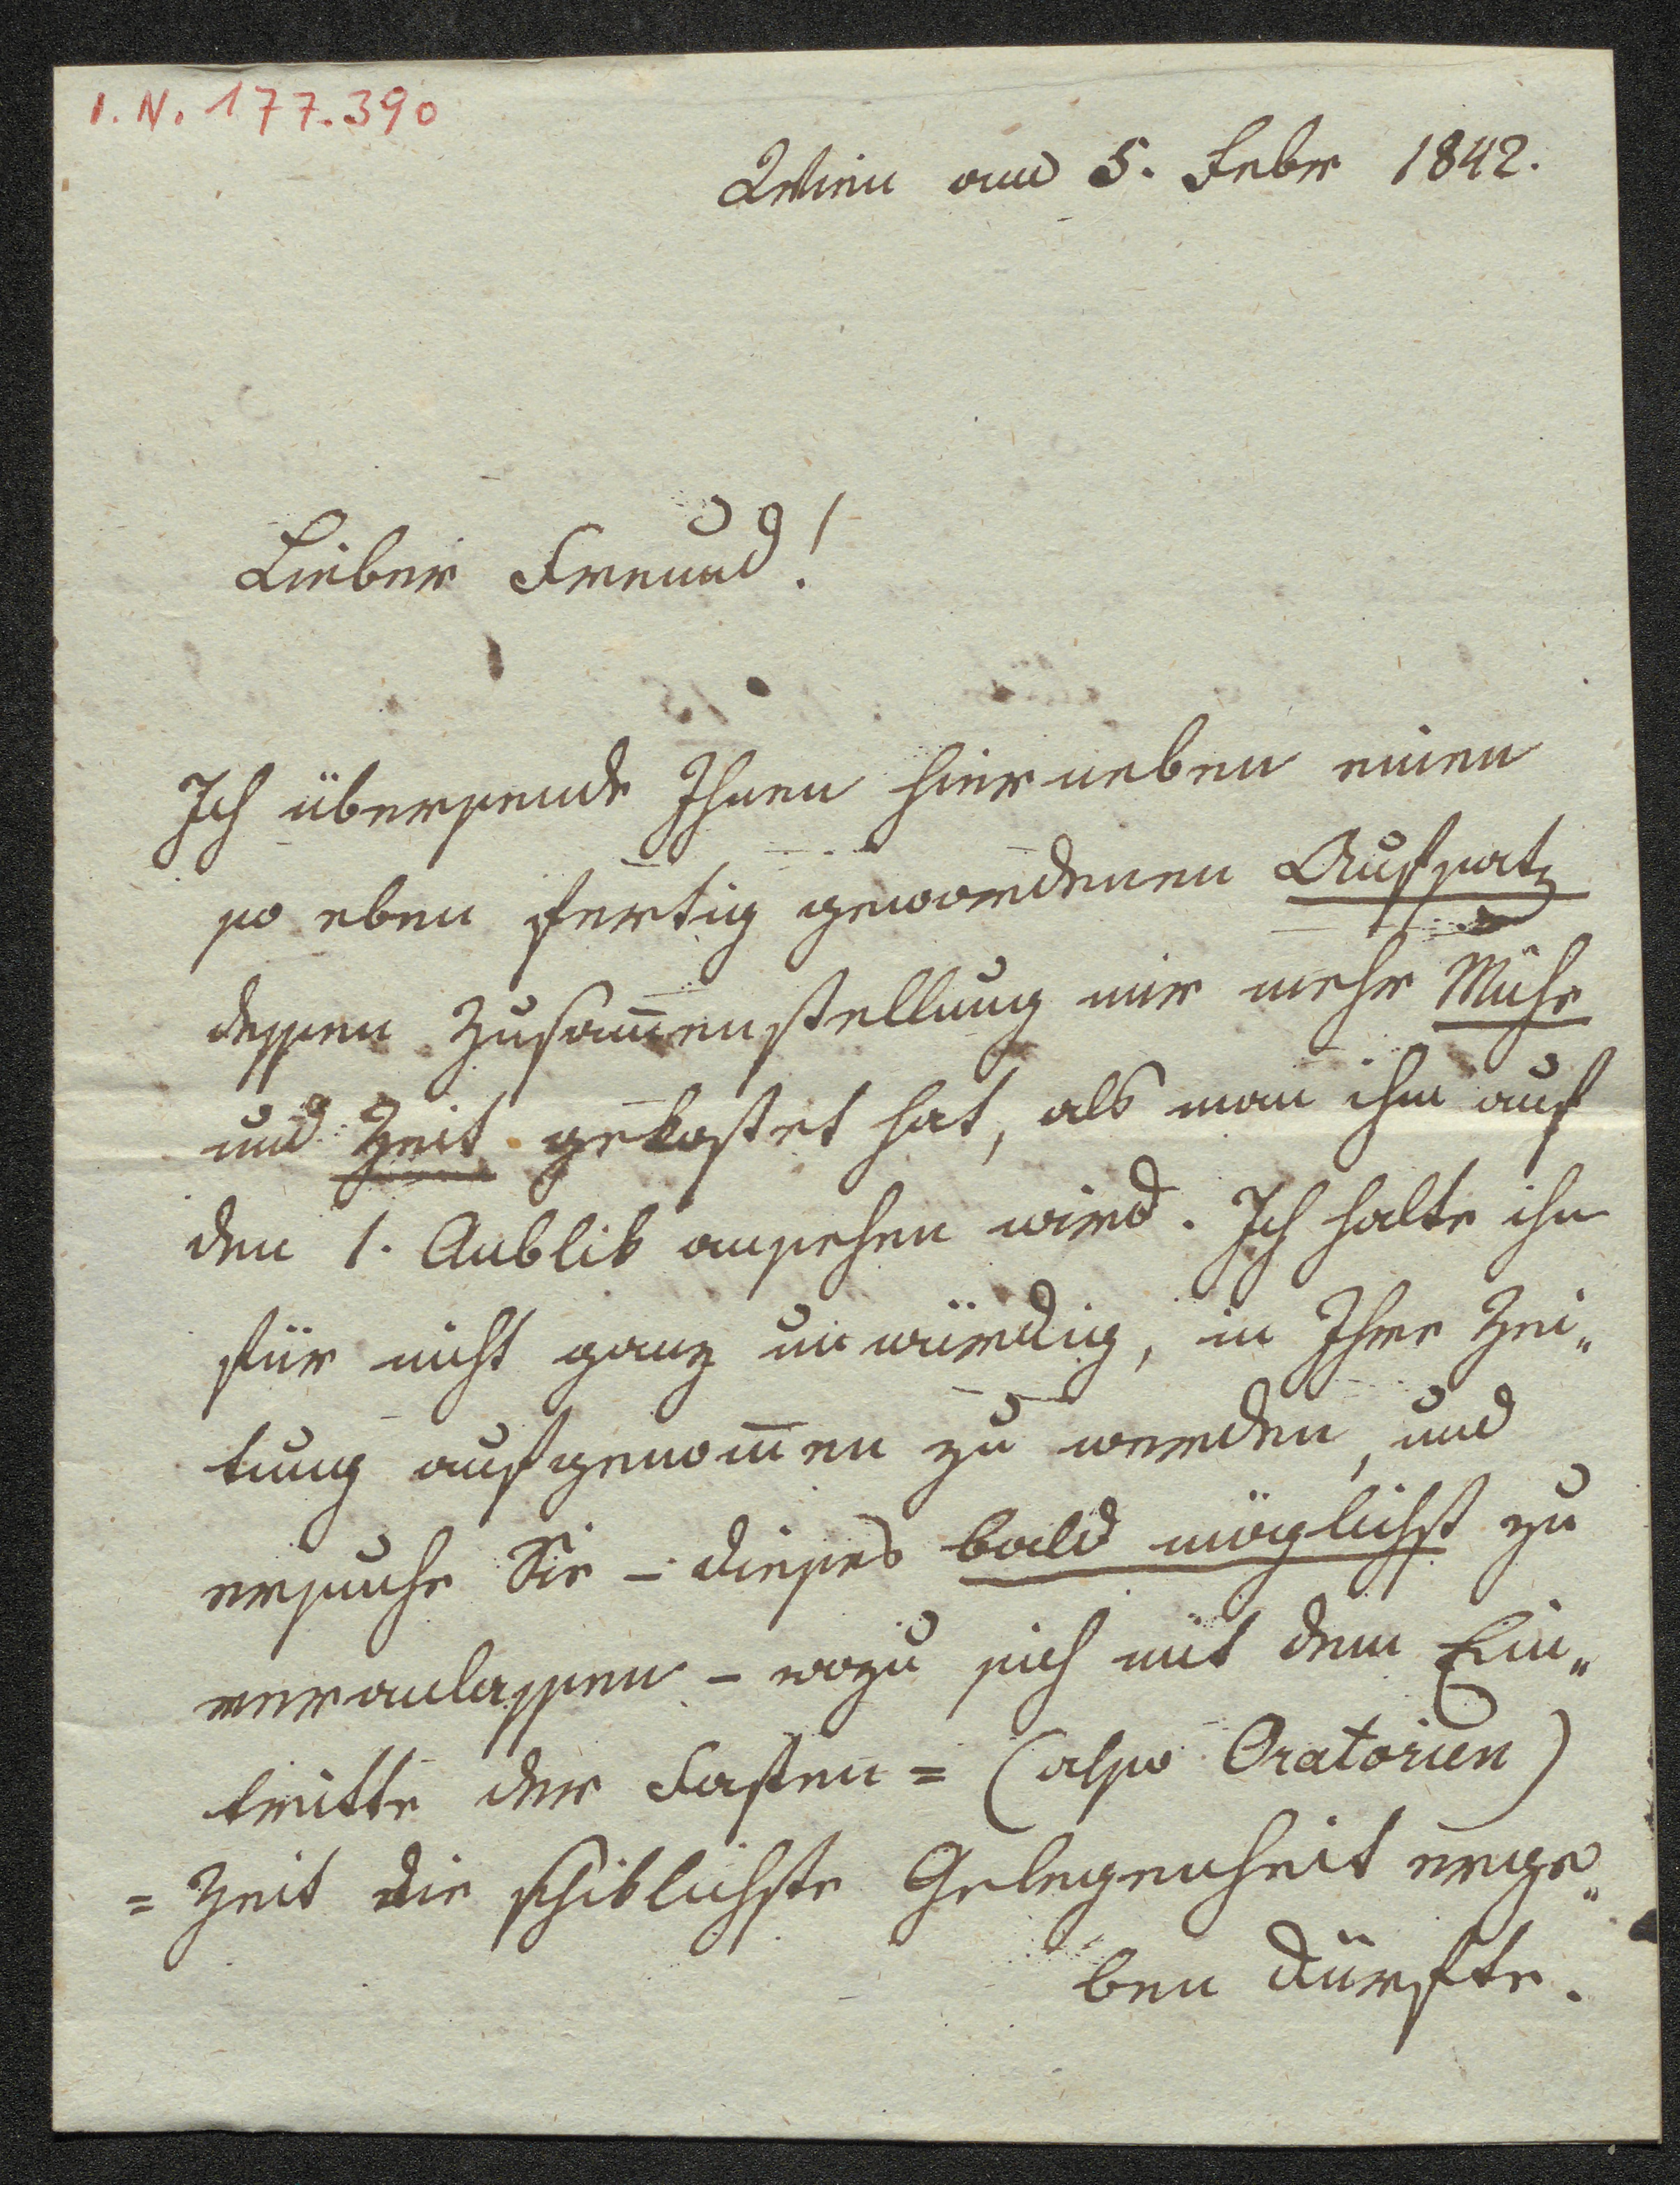 I. N. 177.390
Wien am 5. Febr 1842.
Lieber Freund!
Ich übersende Ihnen hierneben einen
so eben fertig gewordenen Aufsatz
dessen Zusam̅enstellung mir mehr Mühe
und Zeit gekostet hat, als man ihm auf
den 1. Anblik ansehen wird. Ich halte ihn
für nicht ganz unwürdig, in Ihre Zei„
tung aufgenom̅en zu werden, und
ersuche Sie – dieses bald möglichst zu
veranlassen – wozu sich mit dem Ein„
tritte der Fasten= (also Oratorien)
=Zeit die schiklichste Gelegenheit erge„
ben dürfte.